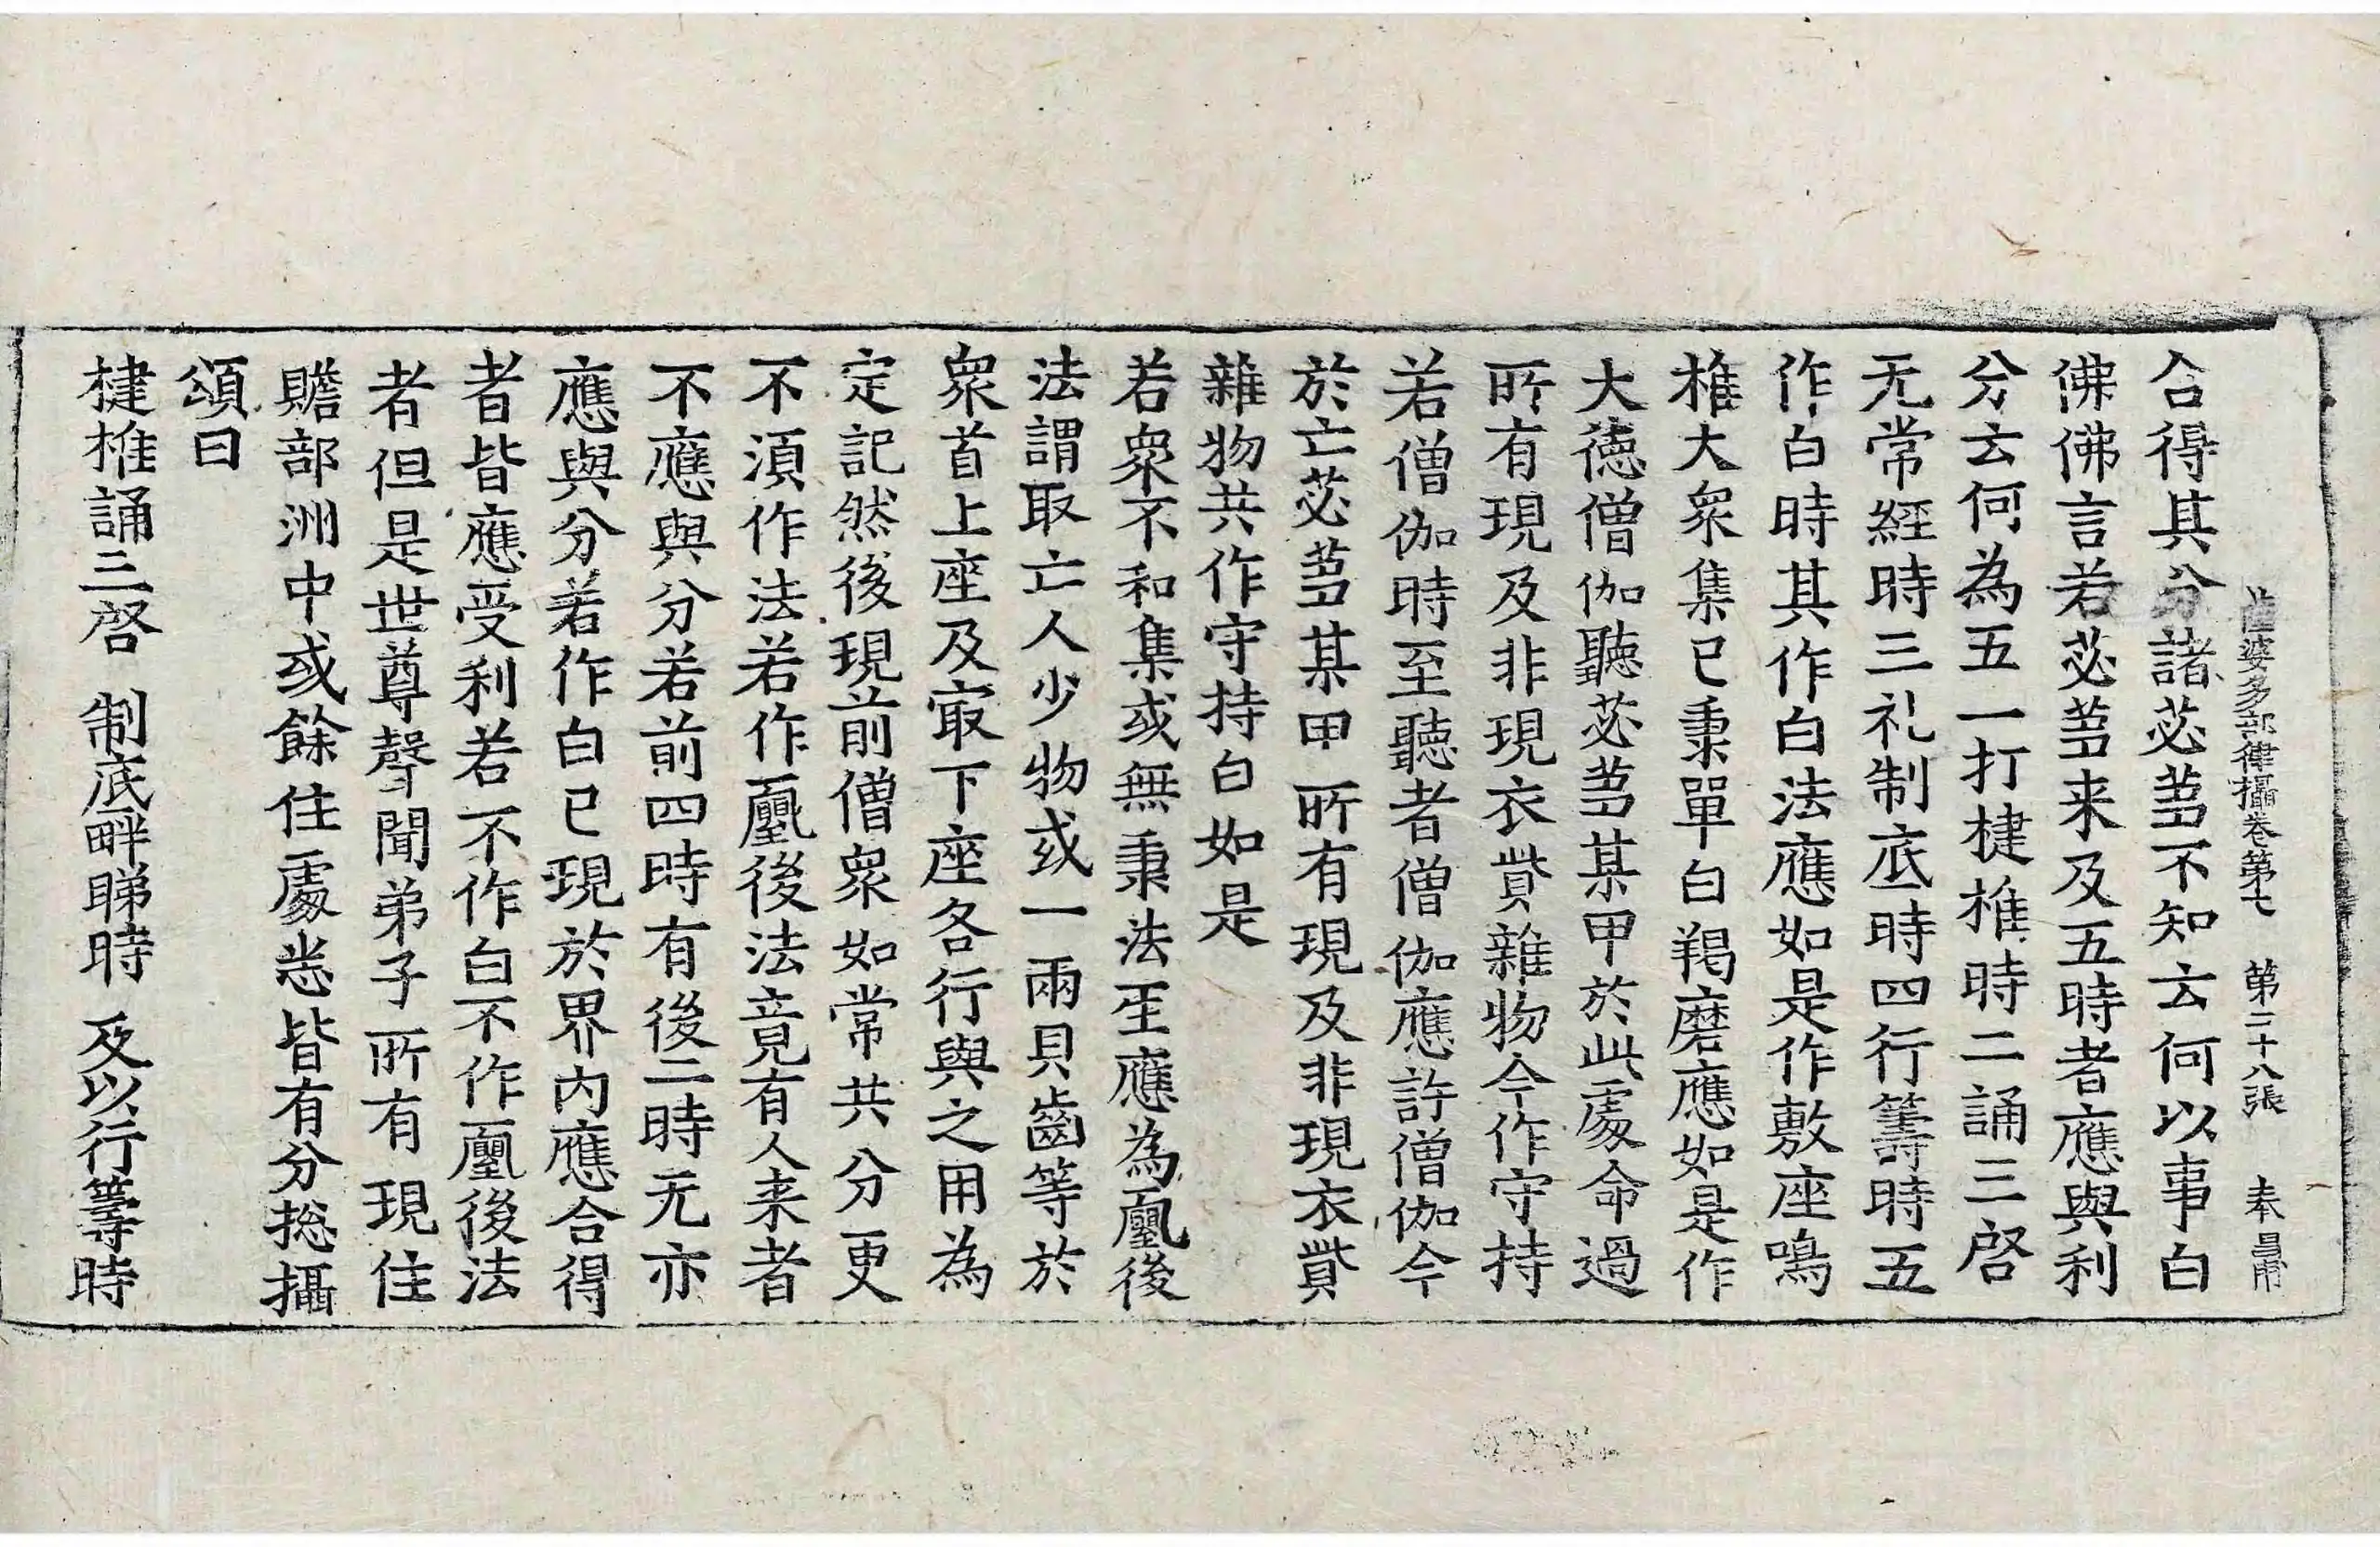 薩婆多部律攝卷第七 第二十八張 奉
合得其分諸苾蒭不知云何以事白
佛佛言若苾蒭来及五時者應與利
分云何為五一打揵椎時二誦三啓
无常經時三礼制底時四行籌時五
作白時其作白法應如是作敷座鳴
椎大衆集已秉單白羯磨應如是作
大德僧伽聽苾蒭某甲於此處命過
所有現及非現衣貲雜物今作守持
若僧伽時至聽者僧伽應許僧伽今
於亡苾蒭某甲所有現及非現衣貲
雜物共作守持白如是
若衆不和集或無秉法者應為初後
法謂取亡人少物或一兩貝齒等於
衆首上座及冣下座各行與之用為
定記然後現前僧衆如常共分更
不湏作法若作初後法竟有人来者
不應與分若前四時有後二時无亦
應與分若作白已現於界内應合得
者皆應受利若不作白不作初後法
者但是世尊聲聞弟子所有現住
贍部洲中或餘住處悉皆有分摠攝
頌曰
揵椎誦三啓 制底畔睇時 及以行籌時